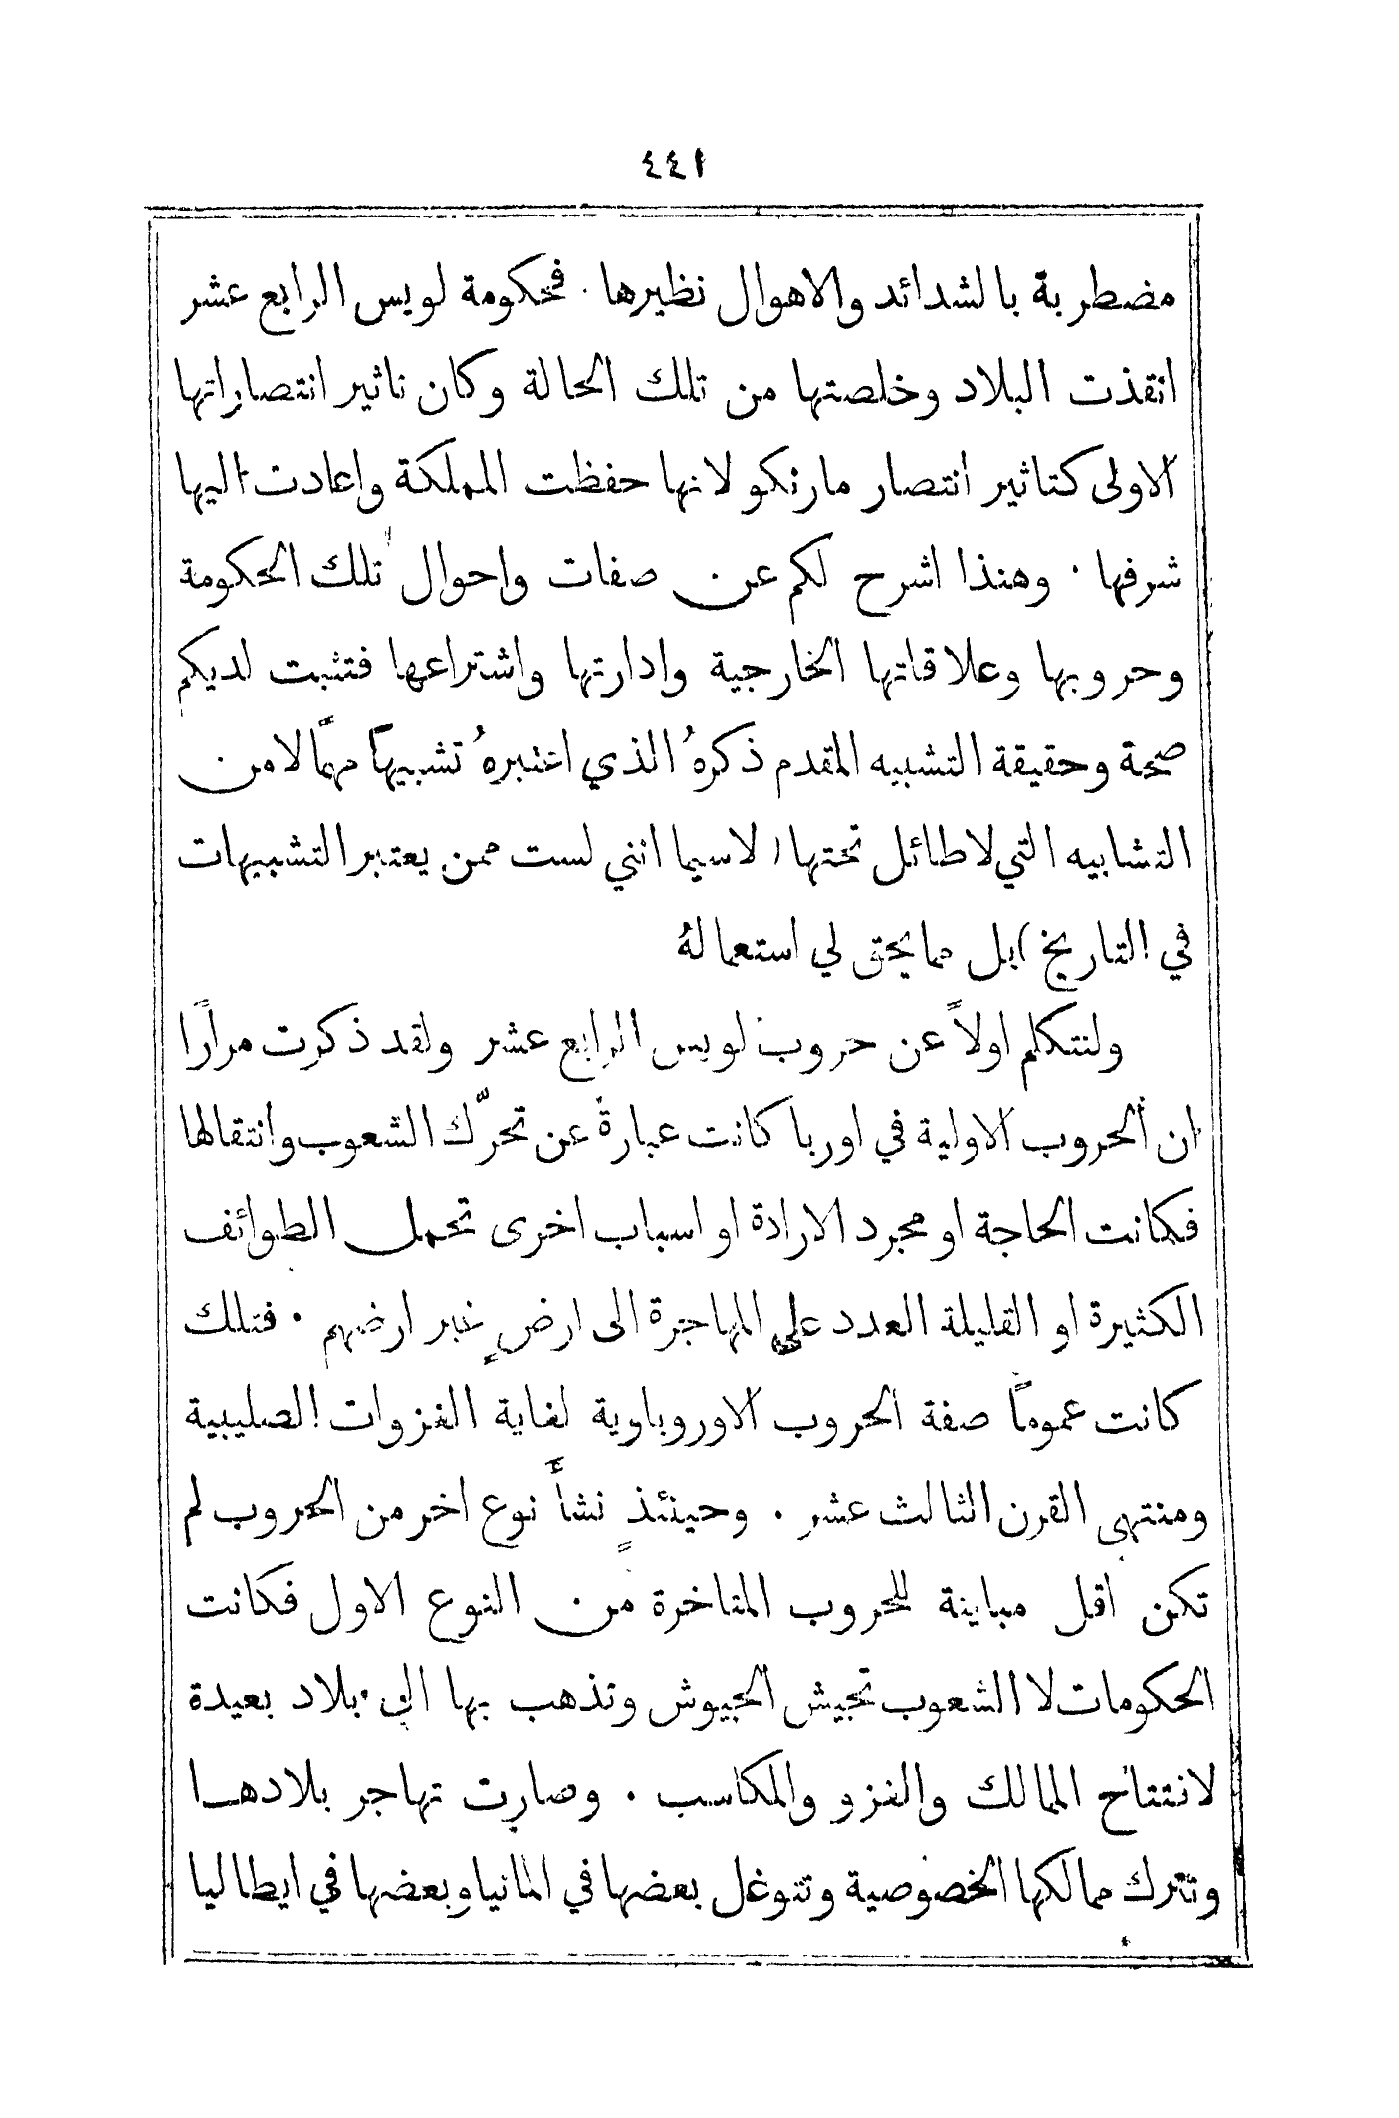 ٤٤١
مضطربة بالشدائد والاهوال نظيرها . فحكومة لويس الرابع عشر
انقذت البلاد وخلصتها من تلك الحالة وكان تاثير انتصاراتها
الاولى كتاثير انتصار مارنكو لانها حفظت المملكة واعادت اليها
شرفها . وهنذا اشرح لكم عن صفات واحوال تلك الحكومة
وحروبها وعلاقاتها الخارجية وادارتها واشتراعها فتثبت لديكم
صحة وحقيقة التشبيه المقدم ذكرهُ الذي اعتبرهُ تشبيهًا مهمًّا لا من
التشابيه التي لا طائل تحتها ( لاسيما انني لست ممن يعتبر التشبيهات
في التاريخ ) بل مما يحق لي استعمالهُ
ولنتكلم اولاً عن حروب لويس الرابع عشر ولقد ذكرت مرارًا
ان الحروب الاولية في اوربا كانت عبارة عن تحرّك الشعوب وانتقالها
فكانت الحاجة او مجرد الارادة او اسباب اخرى تحمل الطوائف
الكثيرة او القليلة العدد على المهاجرة الى ارضٍ غير ارضهم . فتلك
كانت عمومًا صفة الحروب الاوروباوية لغاية الغزوات الصليبية
ومنتهى القرن الثالث عشر . وحينئذٍ نشأ نوع اخر من الحروب لم
تكن اقل مباينة للحروب المتاخرة من النوع الاول فكانت
الحكومات لا الشعوب تجيش الجيوش وتذهب بها الى بلاد بعيدة
لافتتاح الممالك والغزو والمكاسب . وصارت تهاجر بلادها
وتترك ممالكها الخصوصية وتتوغل بعضها في المانيا وبعضها في ايطاليا